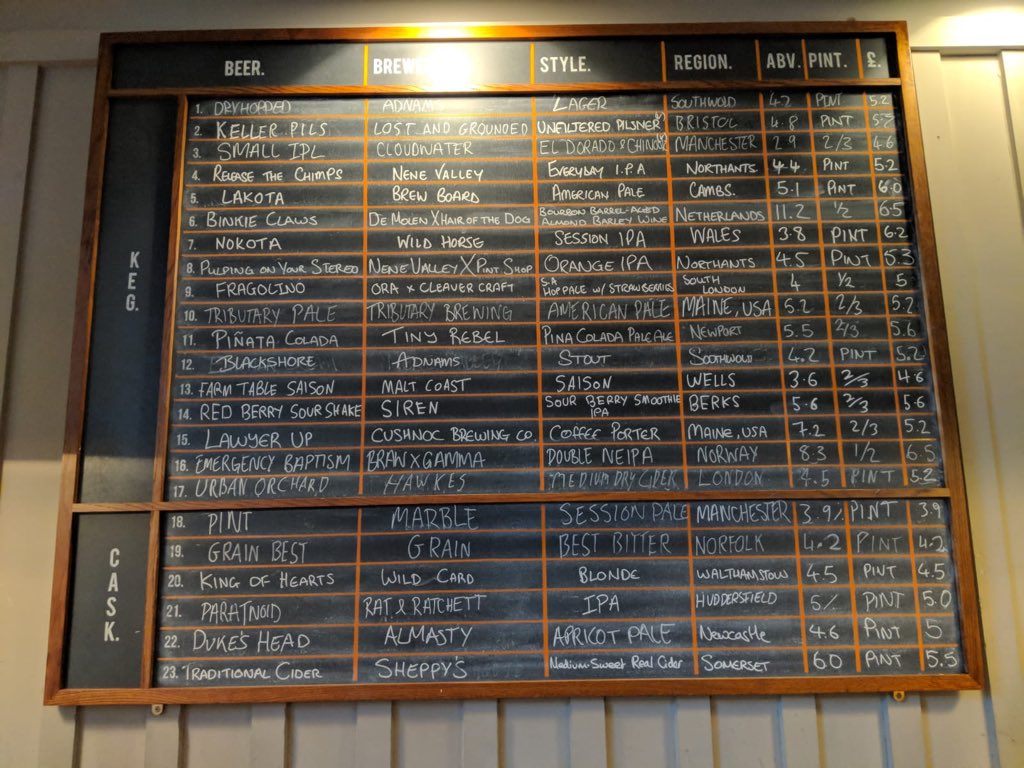 BEER. BREWE STYLE. REGION. ABV. PINT. £.
KEG.
1. DRYHOPPED ADNAMS LAGER SOUTHWOLD 4.2 PINT 5.2
2. KELLER PILS LOST AND GROUNDED UNFILTERED PILSNER BRISTOL 4.8 PINT
3. SMALL IPL CLOUDWATER EL DORADO & CHINOOK MANCHESTER 2.9 2/3 4.6
4. RELEASE THE CHIMPS NENE VALLEY EVERYDAY I.P.A NORTHANTS. 4.4 PINT 5.2
5. LAKOTA BREW BOARD AMERICAN PALE CAMBS. 5.1 PINT 6.0
6. BINKIE CLAWS DE MOLEN X HAIR OF THE DOG BOURBON BARREL-AGED ALMOND BARLEY WINE NETHERLANDS 11.2 1/2 6.5
7. NOKOTA WILD HORSE SESSION IPA WALES 3.8 PINT 6.2
8. PULPING ON YOUR STEREO NENE VALLEY X PINT SHOP ORANGE IPA NORTHANTS 4.5 PINT 5.3
9. FRAGOLINO ORA X CLEAVER CRAFT S.A HOP PALE W/ STRAWBERRIES SOUTH LONDON 4 1/2 5
10. TRIBUTARY PALE TRIBUTARY BREWING AMERICAN PALE MAINE, USA 5.2 2/3 5.2
11. PIÑATA COLADA TINY REBEL PINA COLADA PALE ALE NEWPORT 5.5 2/3 5.6
12. BLACKSHORE ADNAMS STOUT SOUTHWOLD 4.2 PINT 5.2
13. FARM TABLE SAISON MALT COAST SAISON WELLS 3.6 2/3 4.6
14. RED BERRY SOUR SHAKE SIREN SOUR BERRY SMOOTHIE IPA BERKS 5.6 2/3 5.6
15. LAWYER UP CUSHNOC BREWING CO. COFFEE PORTER MAINE, USA 7.2 2/3 5.2
16. EMERGENCY BAPTISM BRAW X GAMMA DOUBLE NEIPA NORWAY 8.3 1/2 6.5
17. URBAN ORCHARD HAWKES MEDIUM DRY CIDER LONDON 4.5 PINT 5.2
CASK.
18. PINT MARBLE SESSION PALE MANCHESTER 3.9% PINT 3.9
19. GRAIN BEST GRAIN BEST BITTER NORFOLK 4.2 PINT 4.2
20. KING OF HEARTS WILD CARD BLONDE WALTHAMSTOW 4.5 PINT 4.5
21. PARATNOID RAT & RATCHETT IPA HUDDERSFIELD 5% PINT 5.0
22. DUKE'S HEAD ALMASTY APRICOT PALE Newcastle 4.6 PINT 5
23. TRADITIONAL CIDER SHEPPY'S Medium-Sweet Real Cider SOMERSET 6.0 PINT 5.5